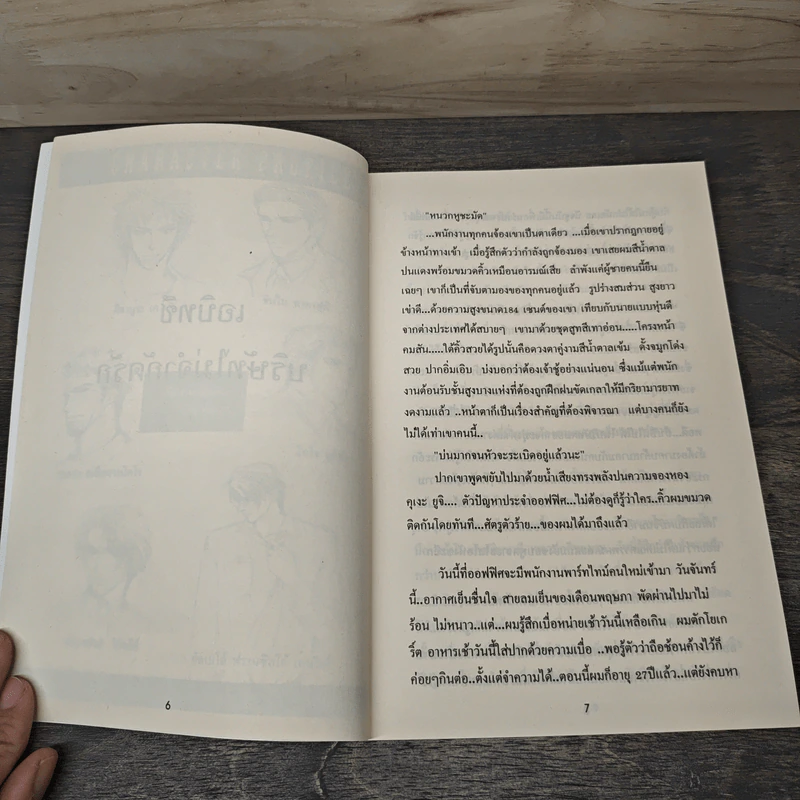 "หนวกหูชะมัด"
...พนักงานทุกคนจ้องเขาเป็นตาเดียว ...เมื่อเขาปรากฏกายอยู่
ข้างหน้าทางเข้า เมื่อรู้สึกตัวว่ากำลังถูกจ้องมอง เขาเสยผมสีน้ำตาล
ปนแดงพร้อมขมวดคิ้วเหมือนอารมณ์เสีย ลำพังแค่ผู้ชายคนนี้ยืน
เฉยๆ เขาก็เป็นที่จับตามองของทุกคนอยู่แล้ว รูปร่างสมส่วน สูงยาว
เข่าดี...ด้วยความสูงขนาด184 เซนต์ของเขา เทียบกับนายแบบหุ่นดี
จากต่างประเทศได้สบายๆ เขามาด้วยชุดสูทสีเทาอ่อน.....โครงหน้า
คมสัน.....ใต้คิ้วสวยได้รูปนั้นคือดวงตาคู่งามสีน้ำตาลเข้ม ดั้งจมูกโด่ง
สวย ปากอิ่มเอิบ บ่งบอกว่าต้องเจ้าชู้อย่างแน่นอน ซึ่งแม้แต่พนัก
งานต้อนรับชั้นสูงบางแห่งที่ต้องถูกฝึกฝนขัดเกลาให้มีกริยามารยาท
งดงามแล้ว ..หน้าตาก็เป็นเรื่องสำคัญที่ต้องพิจารณา แต่บางคนก็ยัง
ไม่ได้เท่าเขาคนนี้..
"บ่นมากจนหัวจะระเบิดอยู่แล้วนะ"
ปากเขาพูดขยับไปมาด้วยน้ำเสียงทรงพลังปนความจองหอง
คุเงะ ยูจิ.... ตัวปัญหาประจำออฟฟิศ...ไม่ต้องดูก็รู้ว่าใคร..คิ้วผมขมวด
ติดกันโดยทันที...ศัตรูตัวร้าย...ของผมได้มาถึงแล้ว
วันนี้ที่ออฟฟิศจะมีพนักงานพาร์ทไทม์คนใหม่เข้ามา วันจันทร์
นี้..อากาศเย็นชื่นใจ สายลมเย็นของเดือนพฤษภา พัดผ่านไปมาไม่
ร้อน ไม่หนาว..แต่...ผมรู้สึกเบื่อหน่ายเช้าวันนี้เหลือเกิน ผมตักโยเก
ริ์ต อาหารเช้าวันนี้ใส่ปากด้วยความเบื่อ ..พอรู้ตัวว่าถือช้อนค้างไว้ก็
ค่อยๆกินต่อ..ตั้งแต่จำความได้..ตอนนี้ผมก็อายุ 27ปีแล้ว..แต่ยังคบหา
6
7